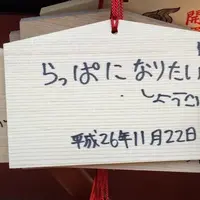 らっぱになりたい
しょうご
平成26年11月22日